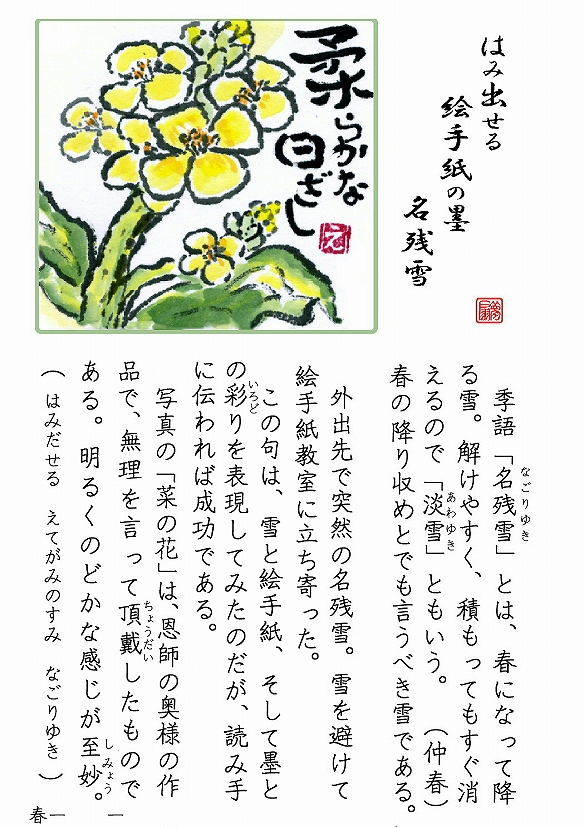 はみ出せる
絵手紙の墨
名残雪
柔らかな
日ざし
季語「名残雪」とは、春になって降
なごりゆき
る雪。解けやすく、積もってもすぐ消
えるので「淡雪」ともいう。（仲春）
あわゆき
春の降り収めとでも言うべき雪である。
外出先で突然の名残雪。雪を避けて
絵手紙教室に立ち寄った。
この句は、雪と絵手紙、そして墨と
の彩りを表現してみたのだが、読み手
いろど
に伝われば成功である。
写真の「菜の花」は、恩師の奥様の作
品で、無理を言って頂戴したもので
ちょうだい
ある。明るくのどかな感じが至妙。
しみょう
（はみだせる　えてがみのすみ　なごりゆき）
春一　一